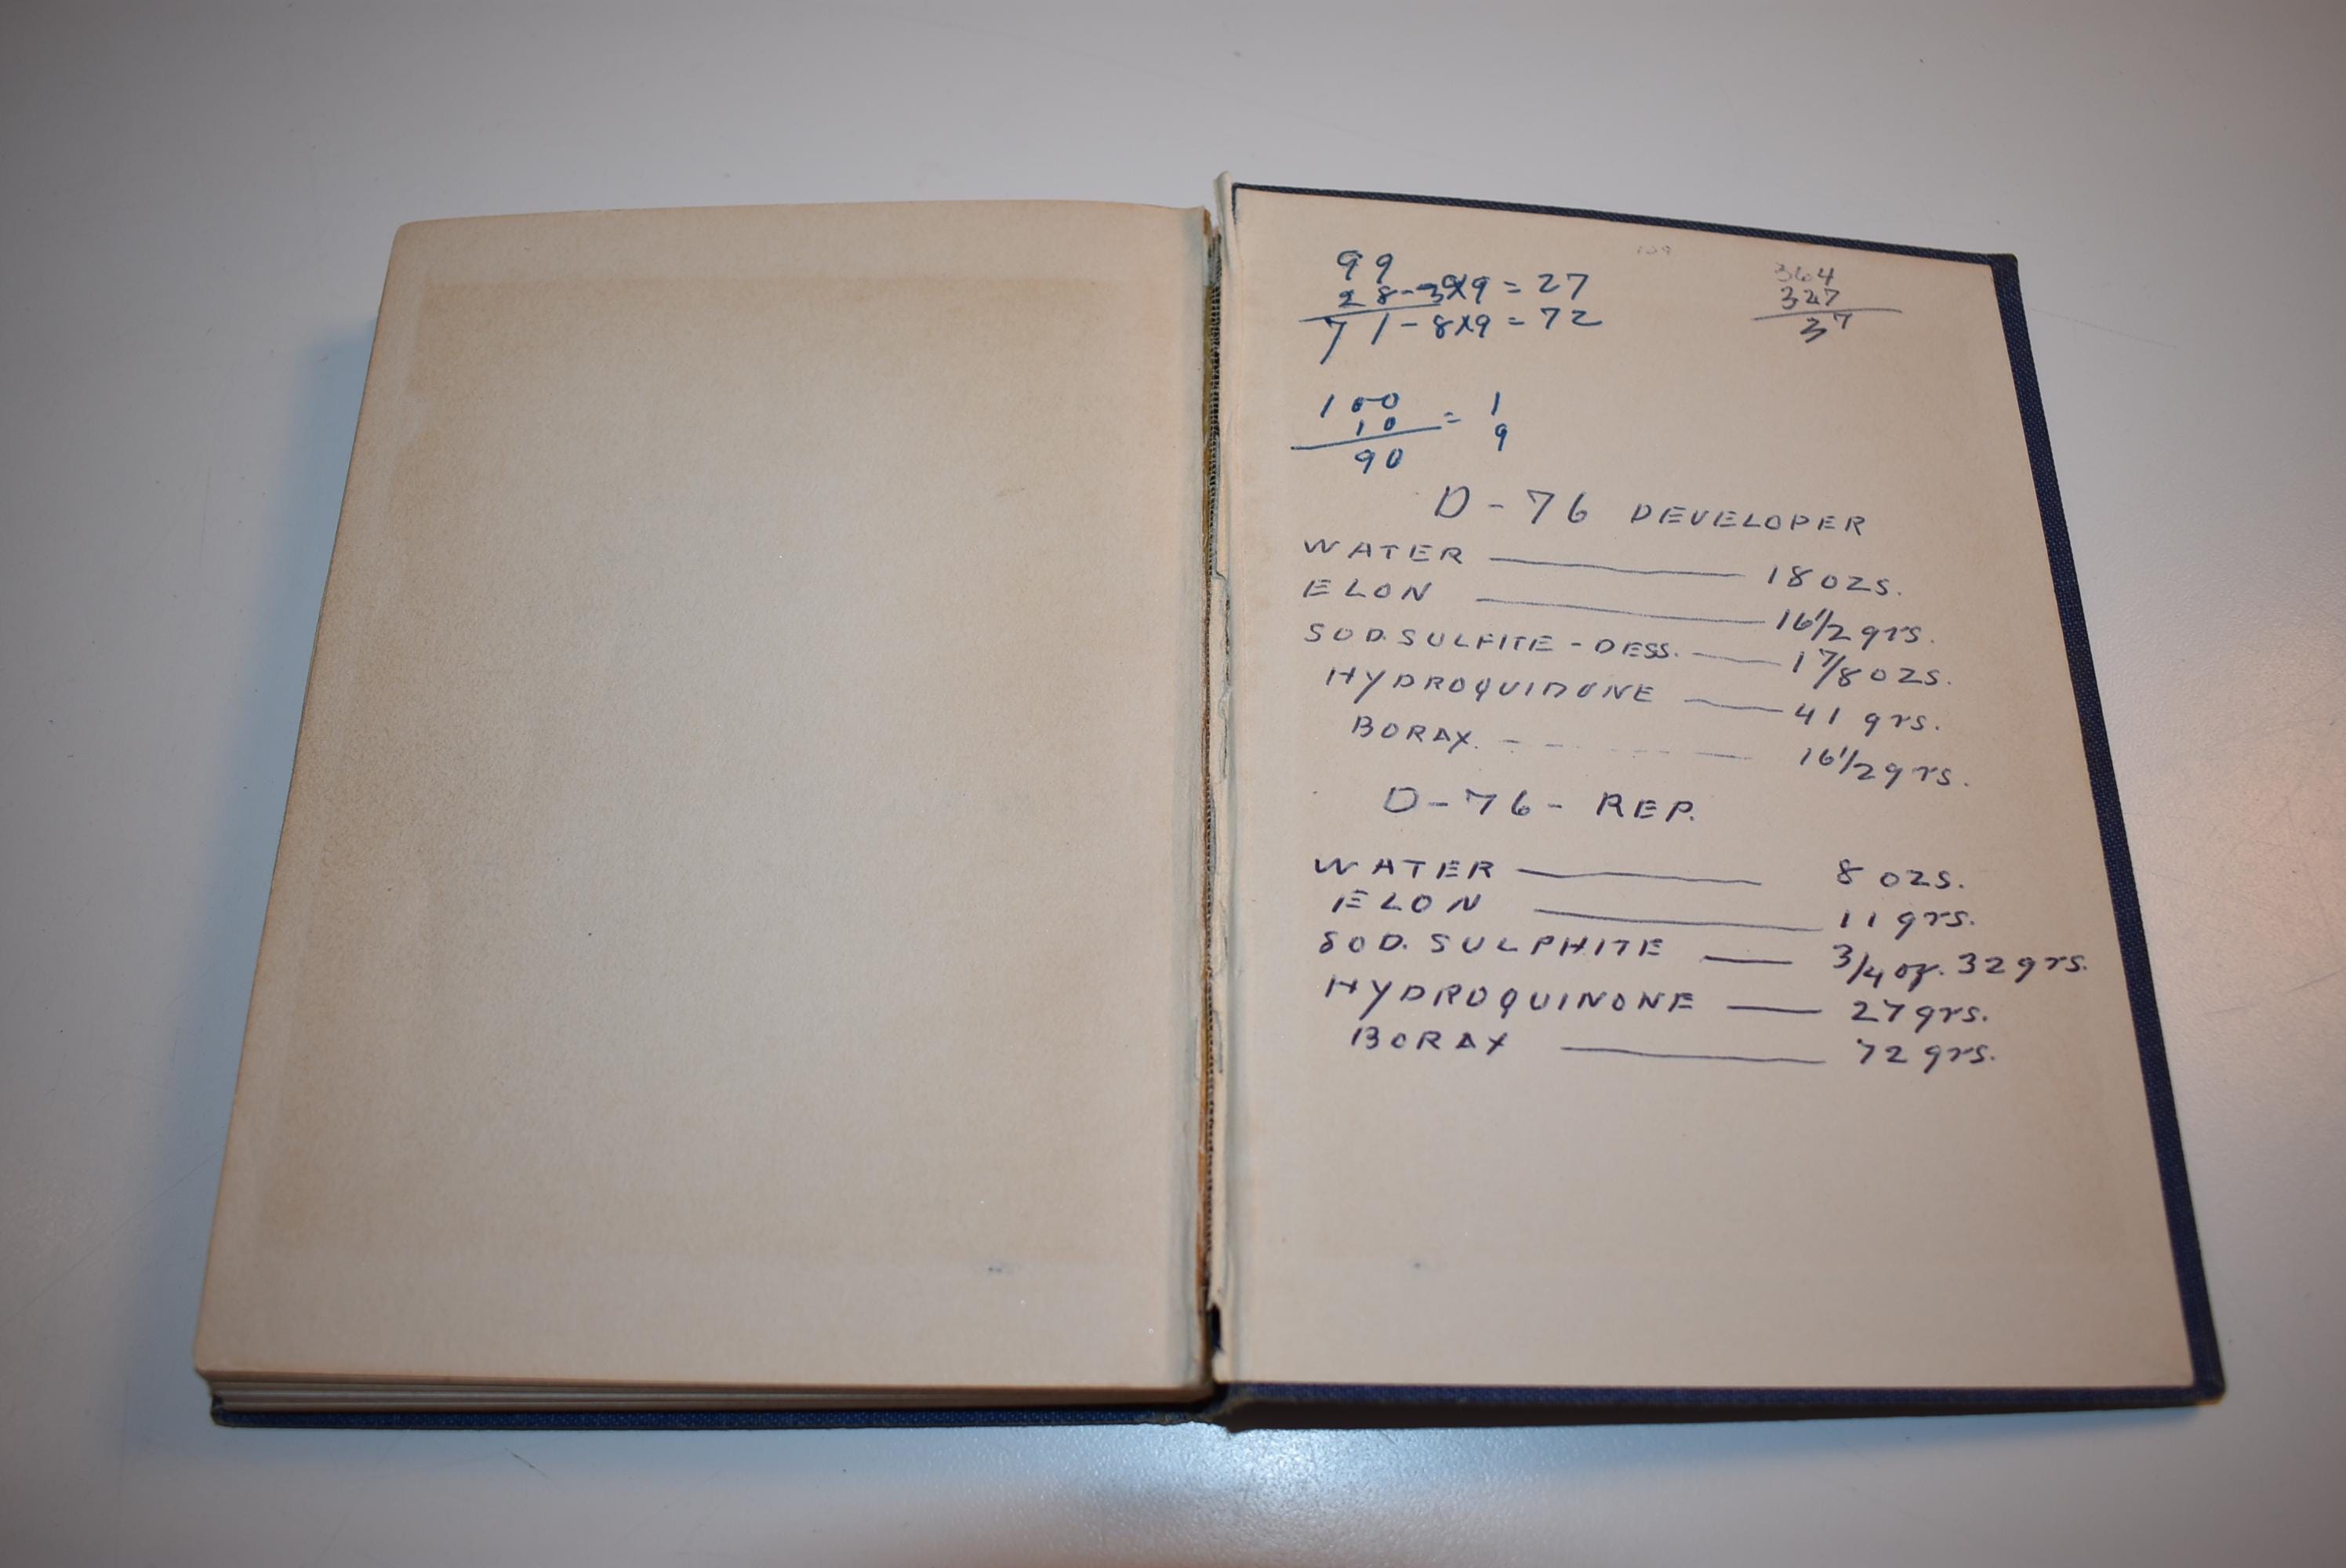 99
28-3x9=27
71-8x9=72
364
327
37
100 = 1
10 9
90
D-76 DEVELOPER
WATER 18 OZS.
ELON 16 1/2 grs.
SOD. SULFITE - DESS. 1 7/8 OZS.
HYDROQUINONE 41 grs.
BORAX. 16 1/2 grs.
D-76- REP.
WATER 8 OZS.
ELON 11 grs.
SOD. SULPHITE 3/4 oz. 32 grs.
HYDROQUINONE 27 grs.
BORAX 72 grs.